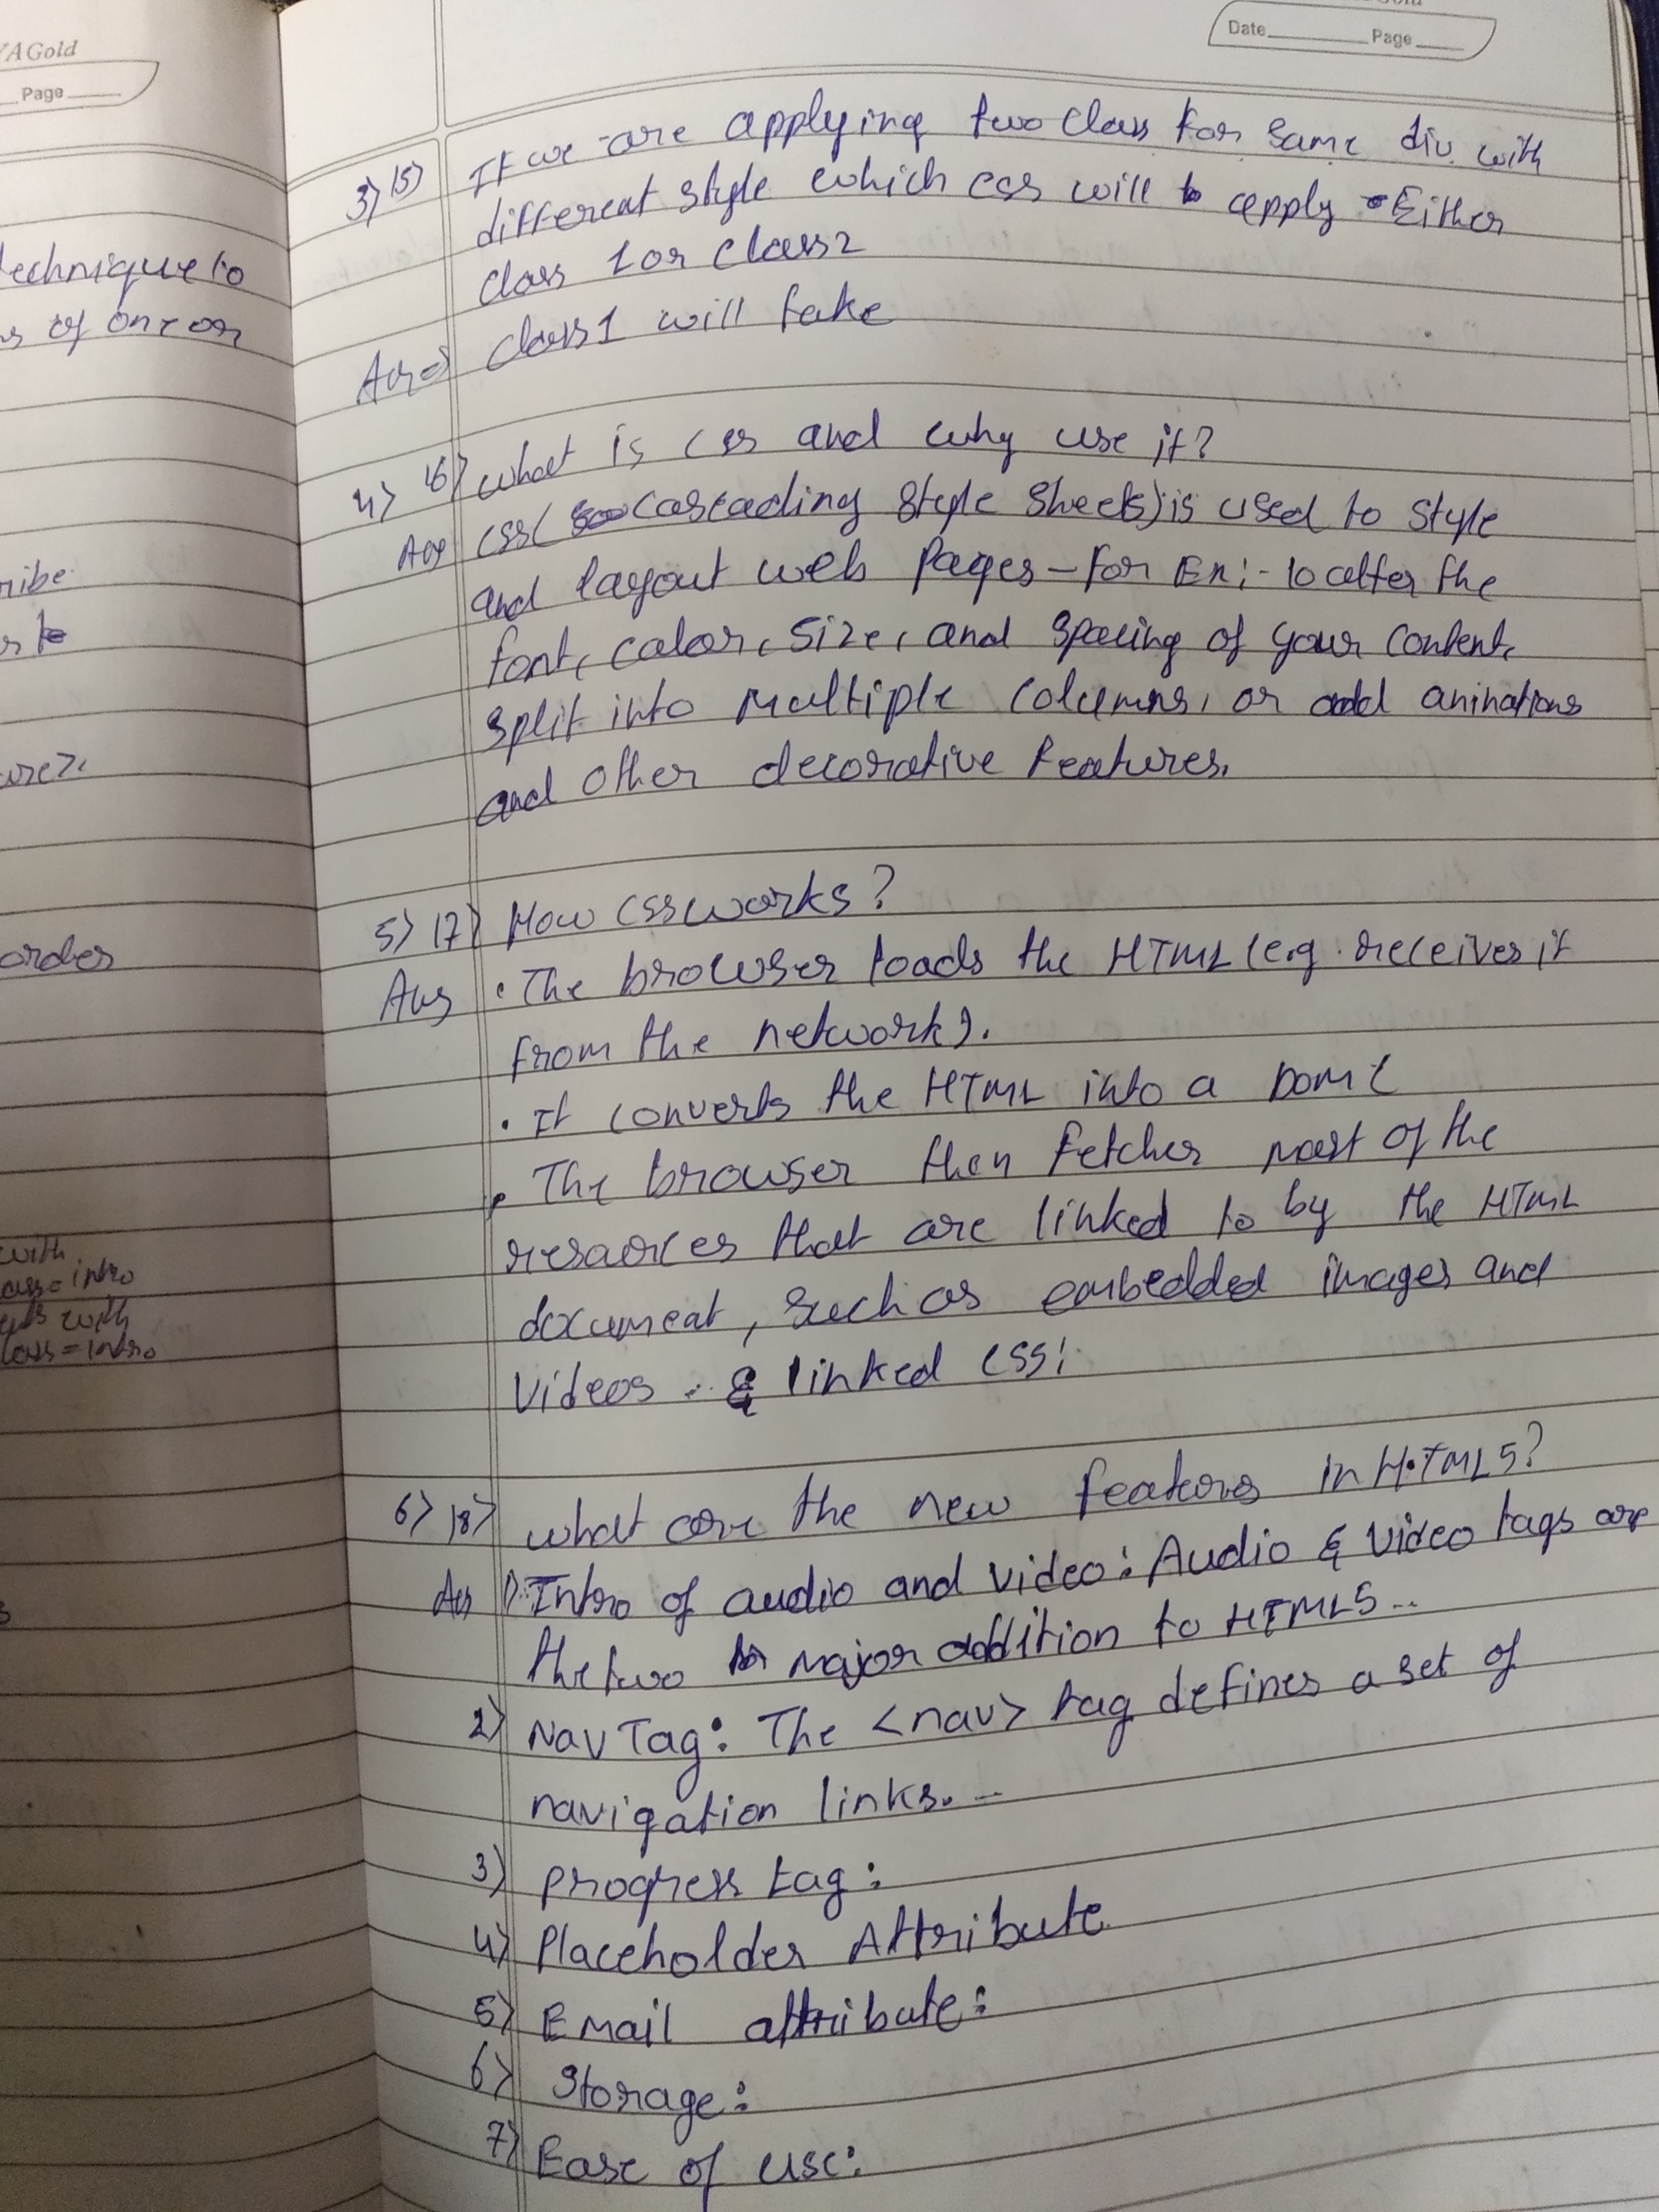 YAGold
Page
technique to
s of one or
ribe
order
with
class=intro
with
class=intro
Date Page
3) 15) If we are applying two class for same div with
different style which css will apply - Either
class 1 or class2
Ans=) class1 will take
4) 16) what is css and why use it?
Ans css( Cascading style sheets) is used to style
and layout web pages - for Ex:- to alter the
font, color, size, and spacing of your content,
split into multiple columns, or add aninations
and other decorative features.
5) 17) How css works?
Ans • The browser loads the HTML (e.g. receives it
from the network).
• It converts the HTML into a DOM (
• The browser then fetches most of the
resources that are linked to by the HTML
document, such as embedded images and
videos .. & linked css:
6) 18) what are the new features in HTML5?
Ans 1) Intro of audio and video: Audio & video tags are
the two major addition to HTML5..
2) Nav Tag: The <nav> tag defines a set of
navigation links. --
3) progress tag:
4) Placeholder Attribute
5) Email attribute:
6) Storage:
7) Ease of use: